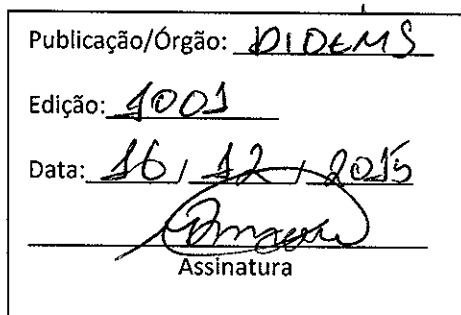 Publicação/Órgão: DIDEMS
Edição: 1001
Data: 16 / 12 / 2015
Assinatura